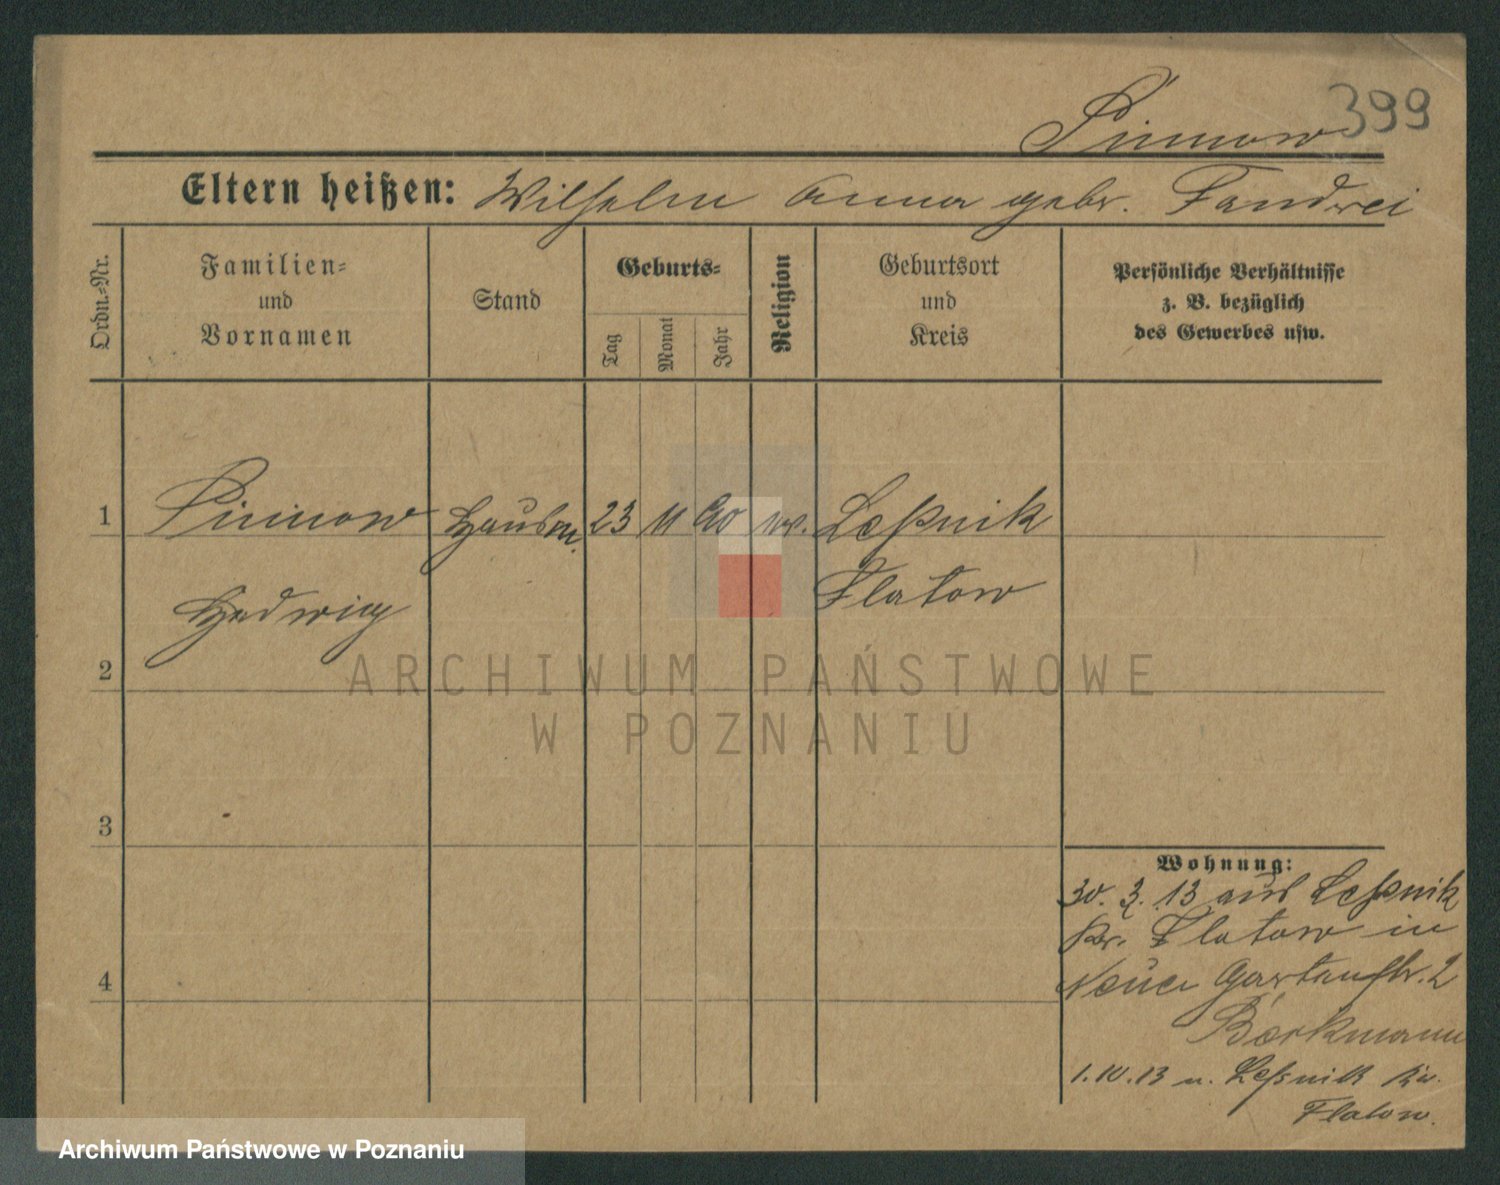 399
Pinnow
Eltern heißen: Wilhelm Anna gebr. Fandrei
Ordn.-Nr.
Familien-
und
Vornamen
Stand
Geburts-
Tag
Monat
Jahr
Religion
Geburtsort
und
Kreis
Persönliche Verhältnisse
z. B. bezüglich
des Gewerbes usw.
1 Pinnow Hausm. 23 11 90 ev. Leßnik
Hedwig Flatow
2
ARCHIWUM PAŃSTWOWE
W POZNANIU
3
Wohnung:
30. 3. 13 aus Leßnik
Kr. Flatow in
Neue Gartenstr. 2
Borkmann
4
1.10.13 n. Leßnik Kr.
Flatow.
Archiwum Państwowe w Poznaniu